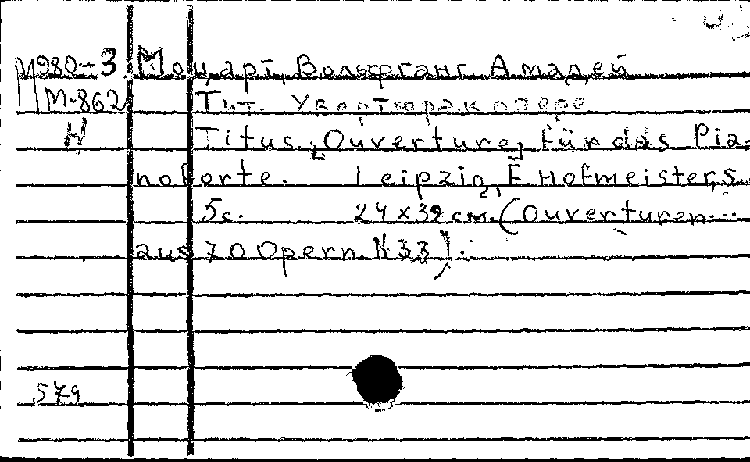 М980-3 Моцарт, Вольфганг Амадей
М-862 Тит. Увертюра к опере
Н Titus, Ouverture, für das Pia-
noforte. Leipzig, F. Hofmeister, s.
5 с. 24 x 32 cm. (Ouverturen...
aus 70 Opern. N 33).
579